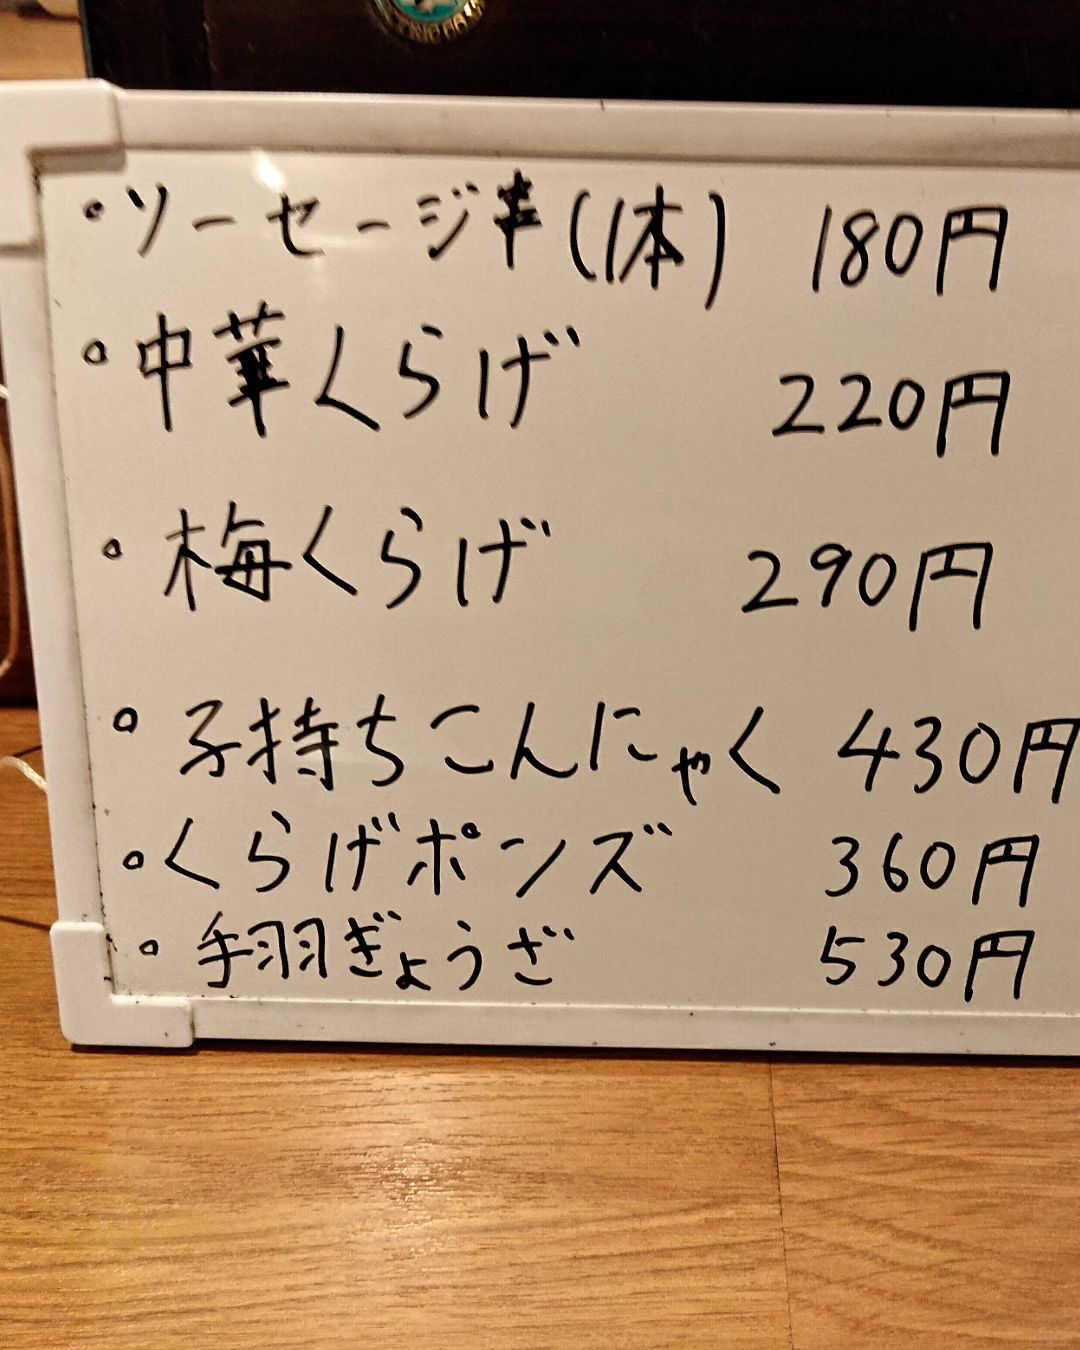 ・ソーセージ串(1本) 180円
・中華くらげ 220円
・梅くらげ 290円
・子持ちこんにゃく 430円
・くらげポンズ 360円
・手羽ぎょうざ 530円